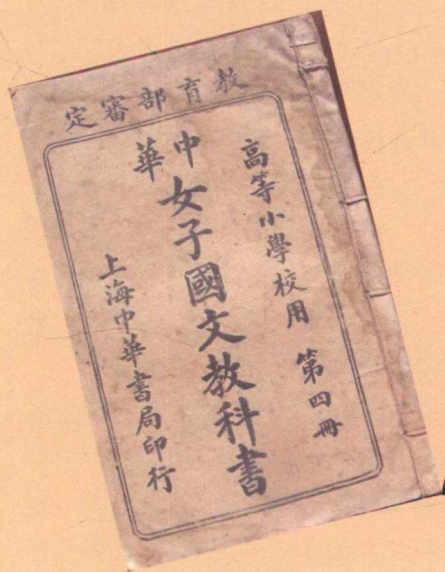 教育部審定
高等小學校用　第四冊
中華女子國文教科書
上海中華書局印行